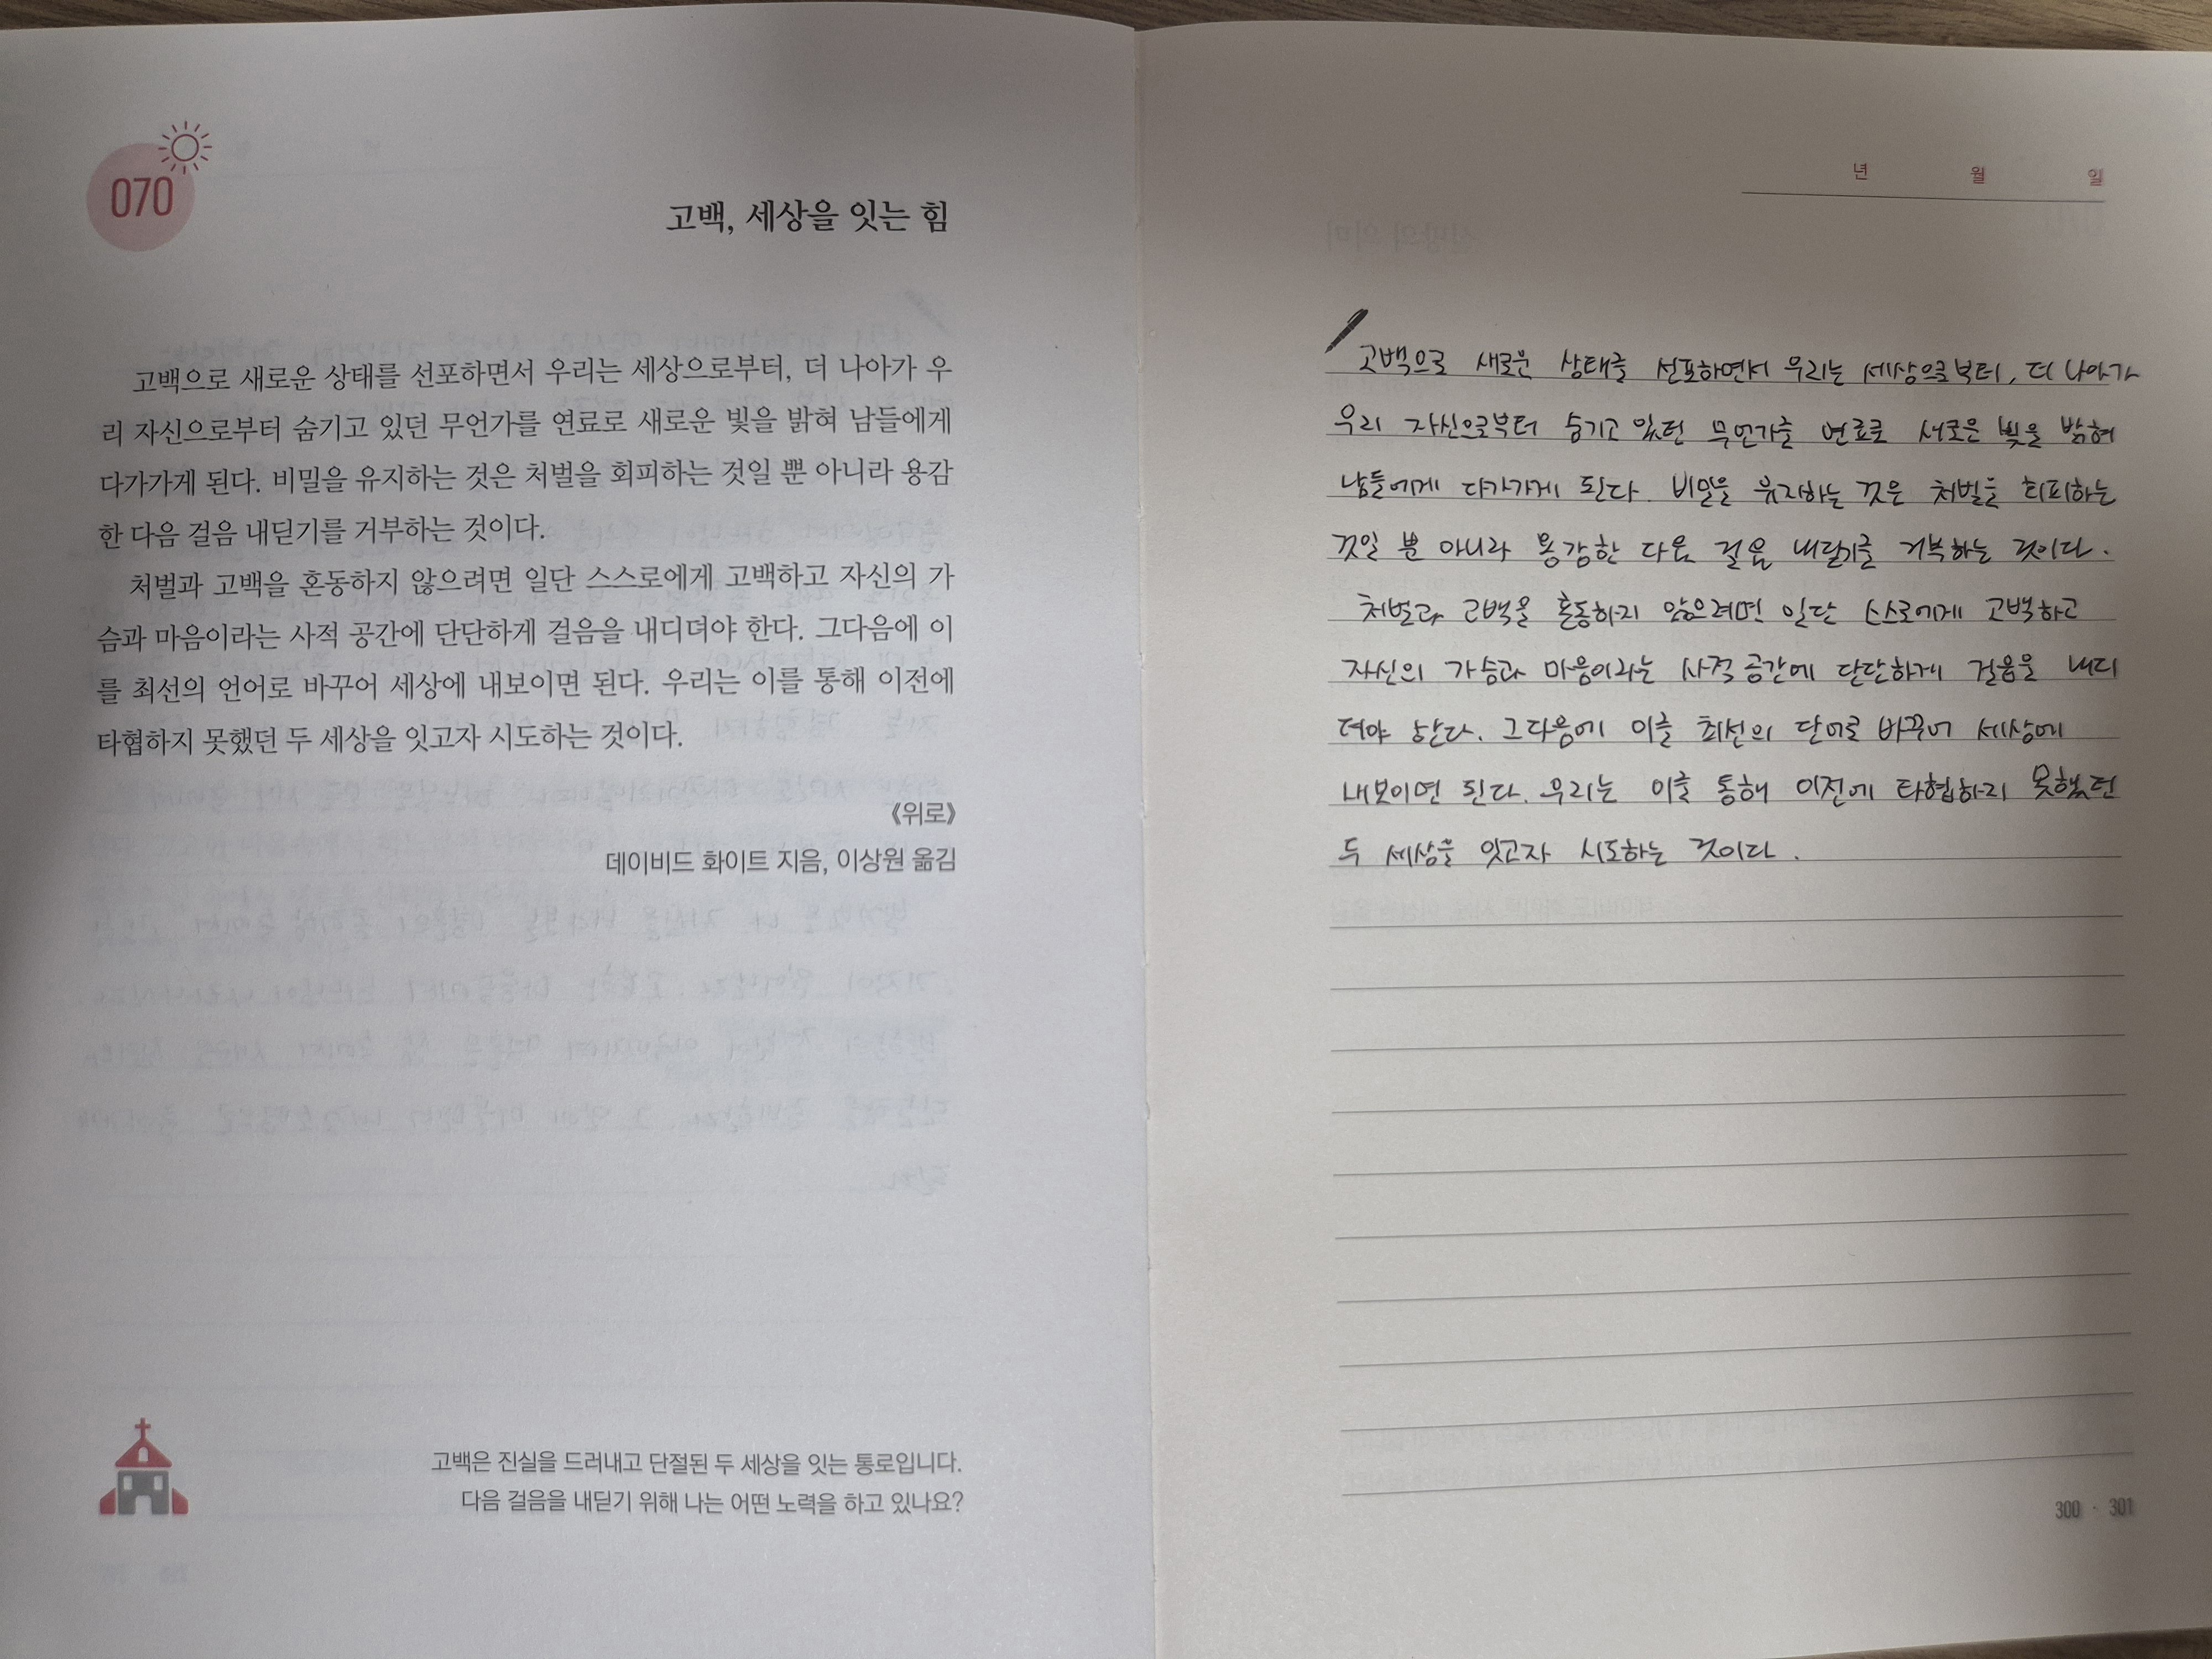 070
고백, 세상을 잇는 힘
고백으로 새로운 상태를 선포하면서 우리는 세상으로부터, 더 나아가 우
리 자신으로부터 숨기고 있던 무언가를 연료로 새로운 빛을 밝혀 남들에게
다가가게 된다. 비밀을 유지하는 것은 처벌을 회피하는 것일 뿐 아니라 용감
한 다음 걸음 내딛기를 거부하는 것이다.
처벌과 고백을 혼동하지 않으려면 일단 스스로에게 고백하고 자신의 가
슴과 마음이라는 사적 공간에 단단하게 걸음을 내디뎌야 한다. 그다음에 이
를 최선의 언어로 바꾸어 세상에 내보이면 된다. 우리는 이를 통해 이전에
타협하지 못했던 두 세상을 잇고자 시도하는 것이다.
《위로》
데이비드 화이트 지음, 이상원 옮김
고백은 진실을 드러내고 단절된 두 세상을 잇는 통로입니다.
다음 걸음을 내딛기 위해 나는 어떤 노력을 하고 있나요?
년 월 일
고백으로 새로운 상태를 선포하면서 우리는 세상으로부터, 더 나아가
우리 자신으로부터 숨기고 있던 무언가를 연료로 새로운 빛을 밝혀
남들에게 다가가게 된다. 비밀을 유지하는 것은 처벌을 회피하는
것일 뿐 아니라 용감한 다음 걸음 내딛기를 거부하는 것이다.
처벌과 고백을 혼동하지 않으려면 일단 스스로에게 고백하고
자신의 가슴과 마음이라는 사적 공간에 단단하게 걸음을 내디
뎌야 한다. 그다음에 이를 최선의 단어로 바꾸어 세상에
내보이면 된다. 우리는 이를 통해 이전에 타협하지 못했던
두 세상을 잇고자 시도하는 것이다.
300 · 301